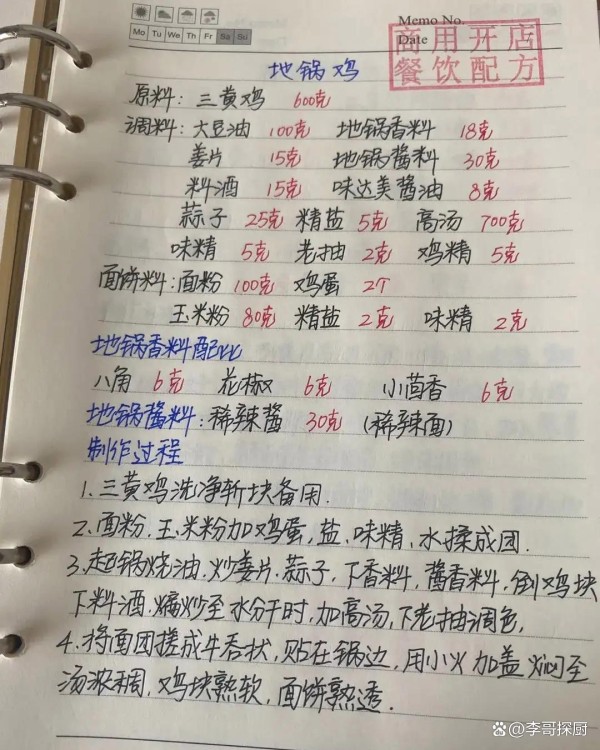 Memo No.
Mo Tu We Th Fr Sa Su
Date
商用开店
餐饮配方
地锅鸡
原料：三黄鸡 600克
调料：大豆油 100克 地锅香料 18克
姜片 15克 地锅酱料 30克
料酒 15克 味达美酱油 8克
蒜子 25克 精盐 5克 高汤 700克
味精 5克 老抽 2克 鸡精 5克
面饼料：面粉 100克 鸡蛋 2个
玉米粉 80克 精盐 2克 味精 2克
地锅香料配比
八角 6克 花椒 6克 小茴香 6克
地锅酱料：稀辣酱 30克 (稀辣面)
制作过程
1.三黄鸡洗净斩块备用.
2.面粉,玉米粉加鸡蛋,盐、味精、水揉成团.
3.起锅烧油,炒姜片.蒜子,下香料,酱香料,倒鸡块
下料酒.煸炒至水分干时,加高汤,下老抽调色,
4.将面团搓成牛舌状,贴在锅边,用小火加盖焖至
汤浓稠,鸡块熟软,面饼熟透.
李哥探厨